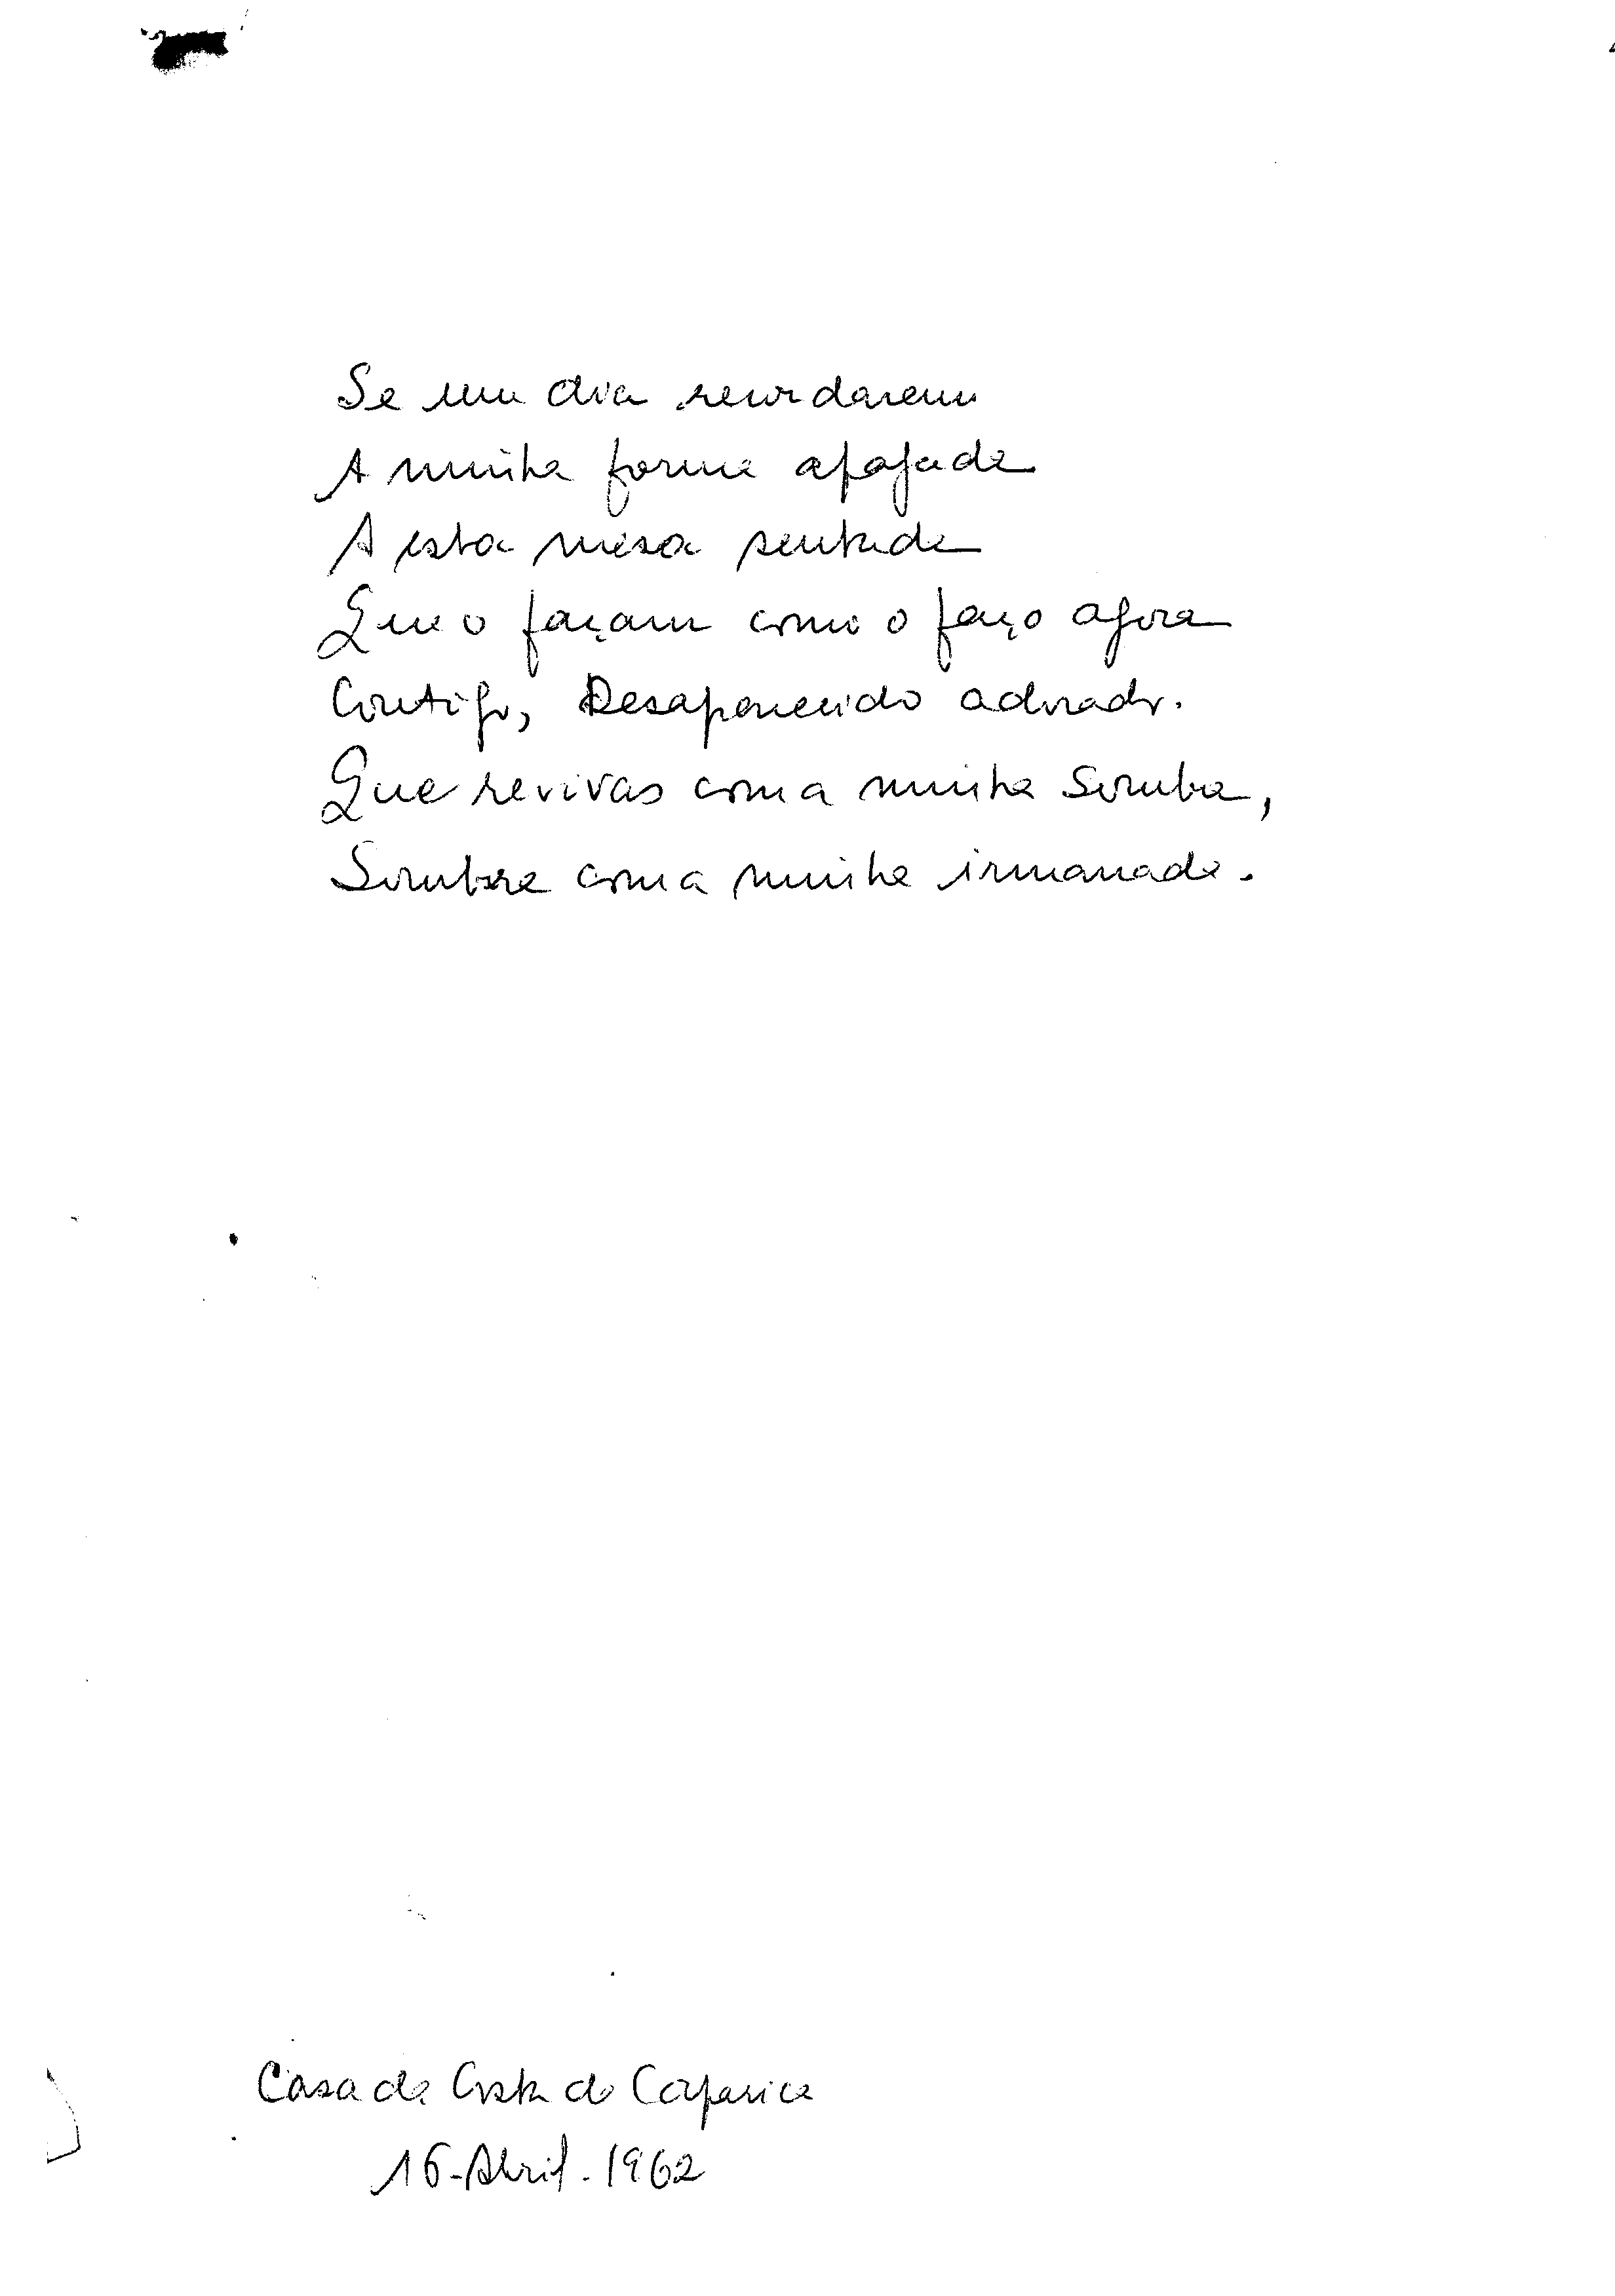 Se um dia recordarem
A minha forma apagada
A esta mesa sentada
Que o façam como o faço agora
Contigo, Desaparecido adorado.
Que revivas com a minha Sombra,
Sombra com a minha irmanada.
Casa da Costa da Caparica
16-Abril-1962